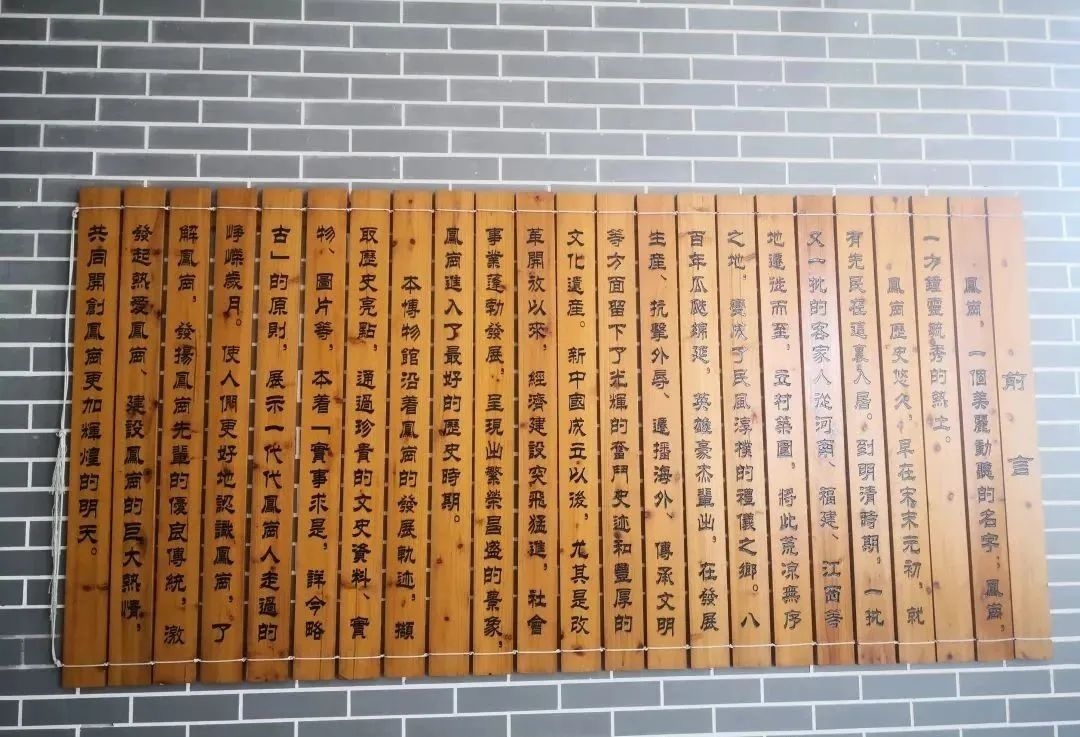 前言
鳳崗，一個美麗動聽的名字，鳳崗，
一方鐘靈毓秀的熱土。
鳳崗歷史悠久，早在宋末元初，就
有先民在這裏入居。到明清時期，一批
又一批的客家人從河南、福建、江西等
地遷徙而至，立村築圍，將此荒凉無序
之地，變成了民風淳樸的禮儀之鄉。八
百年瓜瓞綿延，英雄豪杰輩出，在發展
生産、抗擊外辱、遷播海外、傳承文明
等方面留下了光輝的奮鬥史迹和豐厚的
文化遺産。新中國成立以後，尤其是改
革開放以來，經濟建設突飛猛進，社會
事業蓬勃發展，呈現出繁榮昌盛的景象，
鳳崗進入了最好的歷史時期。
本博物館沿着鳳崗的發展軌迹，擷
取歷史亮點，通過珍貴的文史資料、實
物、圖片等，本着「實事求是，詳今略
古」的原則，展示一代代鳳崗人走過的
崢嶸歲月。使人們更好地認識鳳崗，了
解鳳崗，發揚鳳崗先輩的優良傳統，激
發起熱愛鳳崗、建設鳳崗的巨大熱情，
共同開創鳳崗更加輝煌的明天。